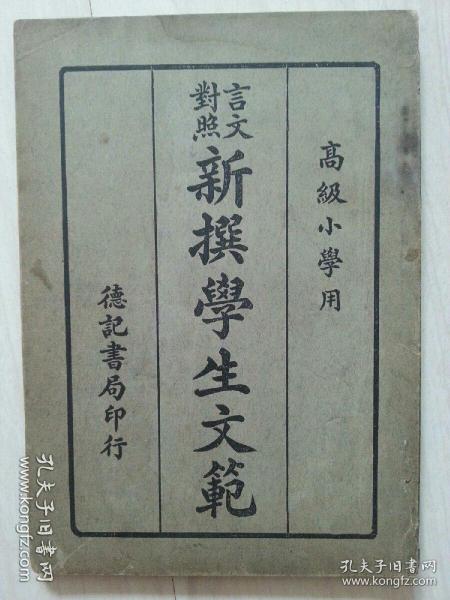 高級小學用
言文對照
新撰學生文範
德記書局印行
孔夫子旧书网
www.kongfz.com
孔夫子旧书网
www.kongfz.com